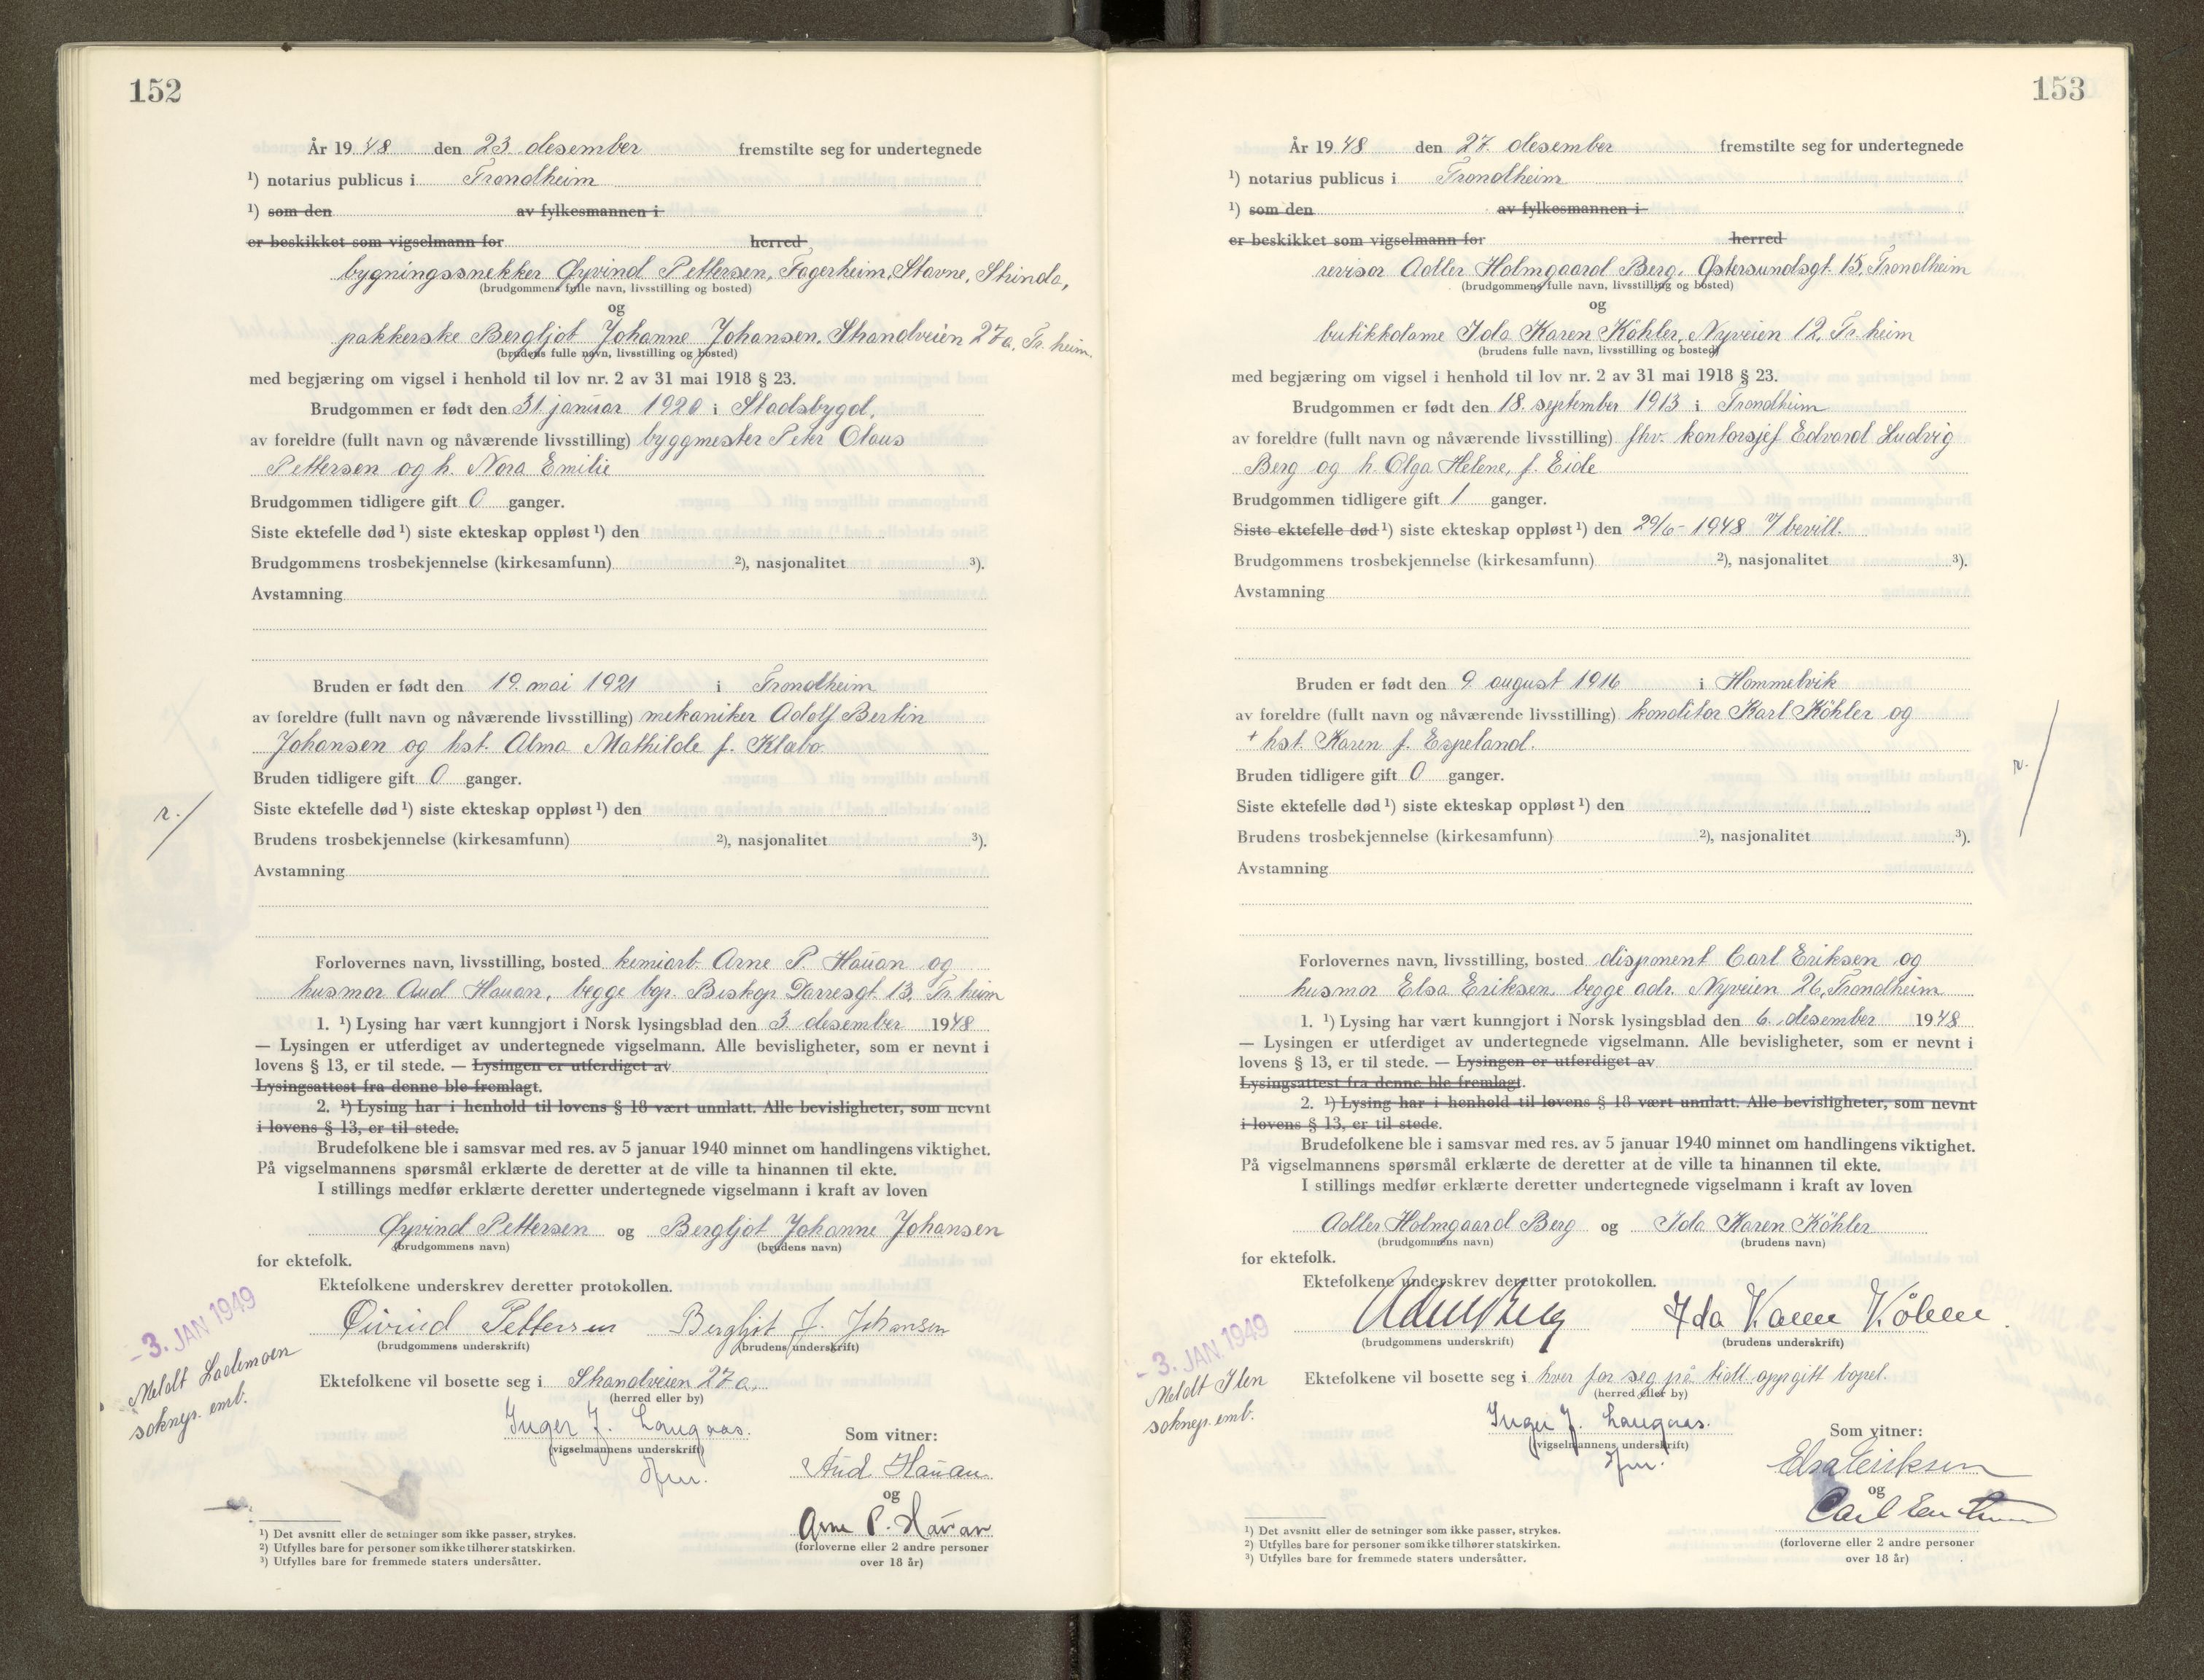 152
År 1948 den 23. desember fremstilte seg for undertegnede
¹) notarius publicus i Trondheim
¹) som den av fylkesmannen i
er beskikket som vigselmann for herred,
bygningssnekker Øyvind Pettersen, Fagerheim, Stavne, Strinda,
(brudgommens fulle navn, livsstilling og bosted)
og
pakkerske Bergljot Johanne Johansen, Strandveien 27a, Tr.heim.
(brudens fulle navn, livsstilling og bosted)
med begjæring om vigsel i henhold til lov nr. 2 av 31 mai 1918 § 23.
Brudgommen er født den 31. januar 1920 i Stadsbygd,
av foreldre (fullt navn og nåværende livsstilling) byggmester Peter Olaus
Pettersen og h. Nora Emilie
Brudgommen tidligere gift 0 ganger.
Siste ektefelle død ¹) siste ekteskap oppløst ¹) den
Brudgommens trosbekjennelse (kirkesamfunn) ²), nasjonalitet ³).
Avstamning
Bruden er født den 19. mai 1921 i Trondheim
av foreldre (fullt navn og nåværende livsstilling) mekaniker Adolf Bertin
Johansen og hst. Alma Mathilde f. Klæbo
Bruden tidligere gift 0 ganger.
r./
Siste ektefelle død ¹) siste ekteskap oppløst ¹) den
Brudens trosbekjennelse (kirkesamfunn) ²), nasjonalitet ³).
Avstamning
Forlovernes navn, livsstilling, bosted kemiarb. Arne P. Hauan og
husmor Aud Hauan, begge bop. Biskop Darresgt. 13, Tr.heim
1. ¹) Lysing har vært kunngjort i Norsk lysingsblad den 3. desember 1948
— Lysingen er utferdiget av undertegnede vigselmann. Alle bevisligheter, som er nevnt i
lovens § 13, er til stede. — Lysingen er utferdiget av
Lysingsattest fra denne ble fremlagt.
2. ¹) Lysing har i henhold til lovens § 18 vært unnlatt. Alle bevisligheter, som nevnt
i lovens § 13, er til stede.
Brudefolkene ble i samsvar med res. av 5 januar 1940 minnet om handlingens viktighet.
På vigselmannens spørsmål erklærte de deretter at de ville ta hinannen til ekte.
I stillings medfør erklærte deretter undertegnede vigselmann i kraft av loven
Øyvind Pettersen og Bergljot Johanne Johansen
(brudgommens navn) (brudens navn)
for ektefolk.
Ektefolkene underskrev deretter protokollen.
-3. JAN 1949
Øivind Pettersen Bergljot J. Johansen
(brudgommens underskrift) (brudens underskrift)
Meldt Lademoen
soknepr. emb.
Ektefolkene vil bosette seg i Strandveien 27a.
(herred eller by)
Inger J. Langaas.
(vigselmannens underskrift)
Som vitner:
Aud Hauan
og
Arne P. Hauan
(forloverne eller 2 andre personer
over 18 år)
¹) Det avsnitt eller de setninger som ikke passer, strykes.
²) Utfylles bare for personer som ikke tilhører statskirken.
³) Utfylles bare for fremmede staters undersåtter.
153
År 1948 den 27. desember fremstilte seg for undertegnede
¹) notarius publicus i Trondheim
¹) som den av fylkesmannen i
er beskikket som vigselmann for herred
revisor Adler Holmgaard Berg, Østersundsgt. 15, Trondheim
(brudgommens fulle navn, livsstilling og bosted)
og
butikkdame Ida Karen Köhler, Nyveien 12, Tr.heim
(brudens fulle navn, livsstilling og bosted)
med begjæring om vigsel i henhold til lov nr. 2 av 31 mai 1918 § 23.
Brudgommen er født den 18. september 1913 i Trondheim
av foreldre (fullt navn og nåværende livsstilling) fhv. kontorsjef Edvard Ludvig
Berg og h. Olga Helene, f. Eide
Brudgommen tidligere gift 1 ganger.
Siste ektefelle død ¹) siste ekteskap oppløst ¹) den 29/6-1948 v/bevill.
Brudgommens trosbekjennelse (kirkesamfunn) ²), nasjonalitet ³).
Avstamning
Bruden er født den 9. august 1916 i Hommelvik
av foreldre (fullt navn og nåværende livsstilling) konditor Karl Köhler og
+ hst. Karen f. Espeland.
Bruden tidligere gift 0 ganger.
r./
Siste ektefelle død ¹) siste ekteskap oppløst ¹) den
Brudens trosbekjennelse (kirkesamfunn) ²), nasjonalitet ³).
Avstamning
Forlovernes navn, livsstilling, bosted disponent Carl Eriksen og
husmor Elsa Eriksen, begge adr. Nyveien 26, Trondheim
1. ¹) Lysing har vært kunngjort i Norsk lysingsblad den 6. desember 1948
— Lysingen er utferdiget av undertegnede vigselmann. Alle bevisligheter, som er nevnt i
lovens § 13, er til stede. — Lysingen er utferdiget av
Lysingsattest fra denne ble fremlagt.
2. ¹) Lysing har i henhold til lovens § 18 vært unnlatt. Alle bevisligheter, som nevnt
i lovens § 13, er til stede.
Brudefolkene ble i samsvar med res. av 5 januar 1940 minnet om handlingens viktighet.
På vigselmannens spørsmål erklærte de deretter at de ville ta hinannen til ekte.
I stillings medfør erklærte deretter undertegnede vigselmann i kraft av loven
Adler Holmgaard Berg og Ida Karen Köhler
(brudgommens navn) (brudens navn)
for ektefolk.
Ektefolkene underskrev deretter protokollen.
-3. JAN 1949
Adler Berg Ida Karen Köhler.
(brudgommens underskrift) (brudens underskrift)
Meldt Ilen
soknepr. emb.
Ektefolkene vil bosette seg i hver for seg på tidl. oppgitt bopel.
(herred eller by)
Inger J. Langaas.
(vigselmannens underskrift)
Som vitner:
Elsa Eriksen
og
Carl Eriksen
(forloverne eller 2 andre personer
over 18 år)
¹) Det avsnitt eller de setninger som ikke passer, strykes.
²) Utfylles bare for personer som ikke tilhører statskirken.
³) Utfylles bare for fremmede staters undersåtter.